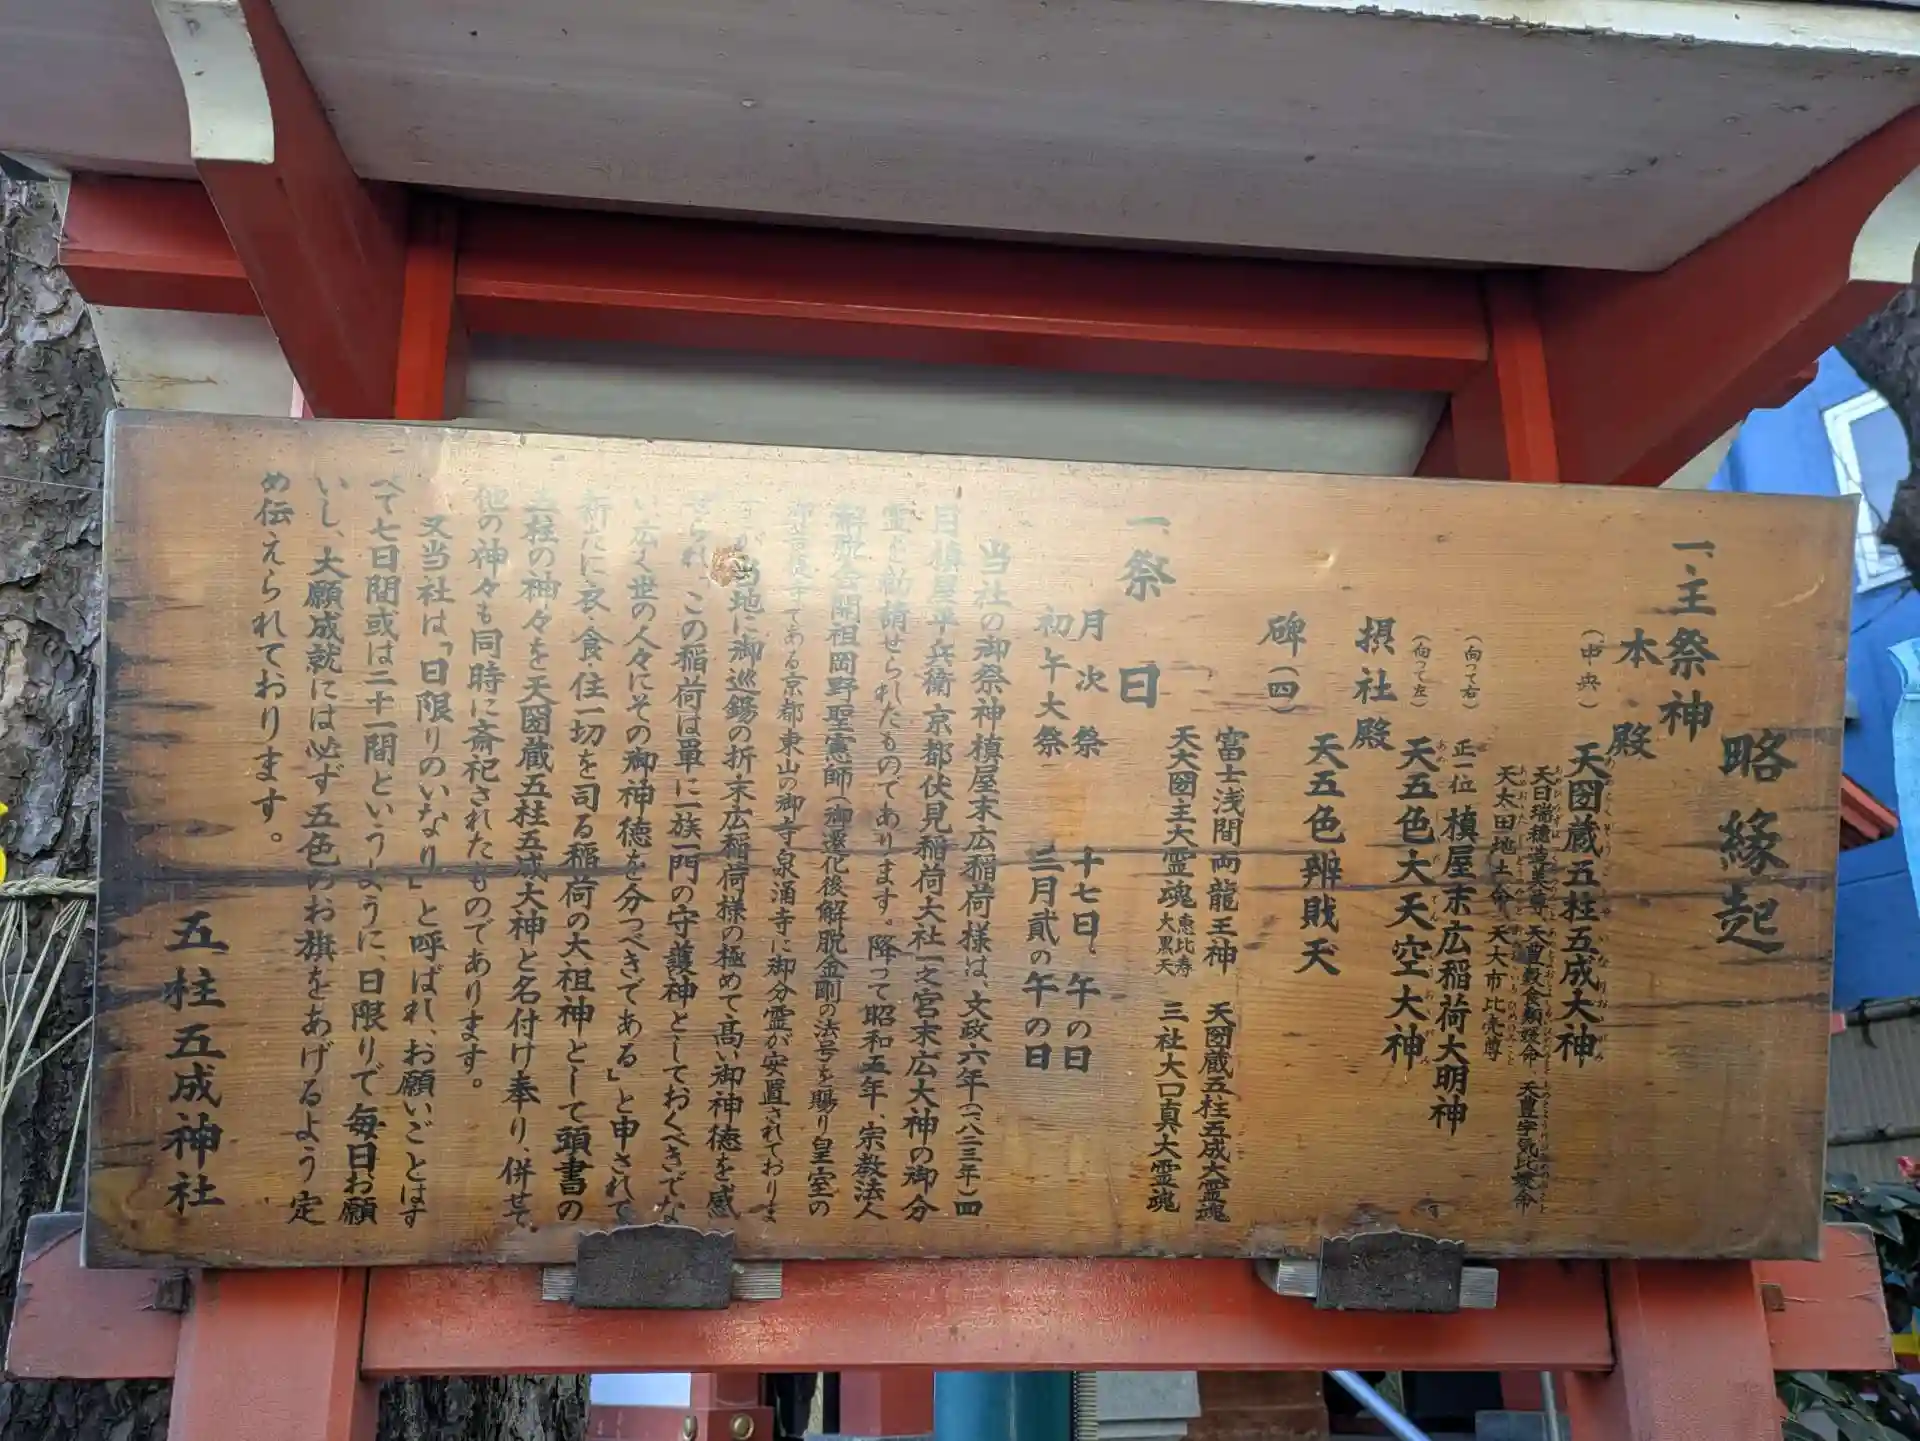 略緣起
一、主祭神
本殿
(中央)
天圀蔵五柱五成大神
天日瑞穂造美尊、天豊穀食類
天太田地土命、天大市比売尊
(向って右)
正一位 槙屋末広稲荷大明神
(向って左)
天五色大天空大神
摂社殿
天五色辨戝天
碑(四)
富士浅間両龍王神 天圀蔵五柱五成大霊魂
天大圀主大霊魂 恵比寿 大黒天 三社大口真大霊魂
一、祭日
月次祭 十七日、午の日
初午大祭 三月貳の午の日
当社の御祭神槙屋末広稲荷様は、文政六年(一八二三年)四
月槙屋平兵衛京都伏見稲荷大社一之宮末広大神の御分
霊を勧請せられたものであります。降って昭和五年、宗教法人
解脱会開祖岡野聖憲師(御遷化後解脱金剛の法号を賜り皇室の
御菩提寺である京都東山の御寺泉涌寺に御分霊が安置されておりま
すが当地に御巡錫の折末広稲荷様の極めて高い御神徳を感
ぜられ、この稲荷は單に一族一門の守護神としておくべきでな
い広く世の人々にその御神徳を分つべきである」と申されて
新たに衣・食・住一切を司る稲荷の大祖神として頭書の
五柱の神々を天圀蔵五柱五成大神と名付け奉り、併せて
他の神々も同時に斎祀されたものであります。
又当社は「日限りのいなり」と呼ばれ、お願いごとはす
べて七日間或は二十一間というように、日限りで毎日お願
いし、大願成就には必ず五色のお旗をあげるよう定
め伝えられております。
五柱五成神社